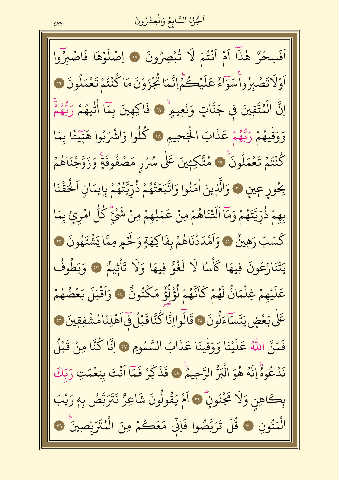 اَلْجُزْءُ السَّابِعُ وَالْعِشْرُونَ
اَفَسِحْرٌ هٰذَٓا اَمْ اَنْتُمْ لَا تُبْصِرُونَ اِصْلَوْهَا فَاصْبِرُٓوا
اَوْ لَا تَصْبِرُوا سَوَٓاءٌ عَلَيْكُمْ اِنَّمَا تُجْزَوْنَ مَا كُنْتُمْ تَعْمَلُونَ
اِنَّ الْمُتَّقِينَ فِي جَنَّاتٍ وَنَعِيمٍ فَاكِهِينَ بِمَٓا اٰتٰيهُمْ رَبُّهُمْ
وَوَقٰيهُمْ رَبُّهُمْ عَذَابَ الْجَحِيمِ كُلُوا وَاشْرَبُوا هَنِٓيـًٔا بِمَا
كُنْتُمْ تَعْمَلُونَ مُتَّكِـِٔينَ عَلٰى سُرُرٍ مَصْفُوفَةٍ وَزَوَّجْنَاهُمْ
بِحُورٍ عِينٍ وَالَّذِينَ اٰمَنُوا وَاتَّبَعَتْهُمْ ذُرِّيَّتُهُمْ بِاِيمَانٍ اَلْحَقْنَا
بِهِمْ ذُرِّيَّتَهُمْ وَمَٓا اَلَتْنَاهُمْ مِنْ عَمَلِهِمْ مِنْ شَيْءٍ كُلُّ امْرِئٍ بِمَا
كَسَبَ رَهِينٌ وَاَمْدَدْنَاهُمْ بِفَاكِهَةٍ وَلَحْمٍ مِمَّا يَشْتَهُونَ
يَتَنَازَعُونَ فِيهَا كَأْسًا لَا لَغْوٌ فِيهَا وَلَا تَأْثِيمٌ وَيَطُوفُ
عَلَيْهِمْ غِلْمَانٌ لَهُمْ كَاَنَّهُمْ لُؤْلُؤٌ مَكْنُونٌ وَاَقْبَلَ بَعْضُهُمْ
عَلٰى بَعْضٍ يَتَسَٓاءَلُونَ قَالُٓوا اِنَّا كُنَّا قَبْلُ فِٓي اَهْلِنَا مُشْفِقِينَ
فَمَنَّ اللّٰهُ عَلَيْنَا وَوَقٰينَا عَذَابَ السَّمُومِ اِنَّا كُنَّا مِنْ قَبْلُ
نَدْعُوهُ اِنَّهُ هُوَ الْبَرُّ الرَّحِيمُ فَذَكِّرْ فَمَٓا اَنْتَ بِنِعْمَتِ رَبِّكَ
بِكَاهِنٍ وَلَا مَجْنُونٍ اَمْ يَقُولُونَ شَاعِرٌ نَتَرَبَّصُ بِهِ رَيْبَ
الْمَنُونِ قُلْ تَرَبَّصُوا فَاِنِّي مَعَكُمْ مِنَ الْمُتَرَبِّصِينَ